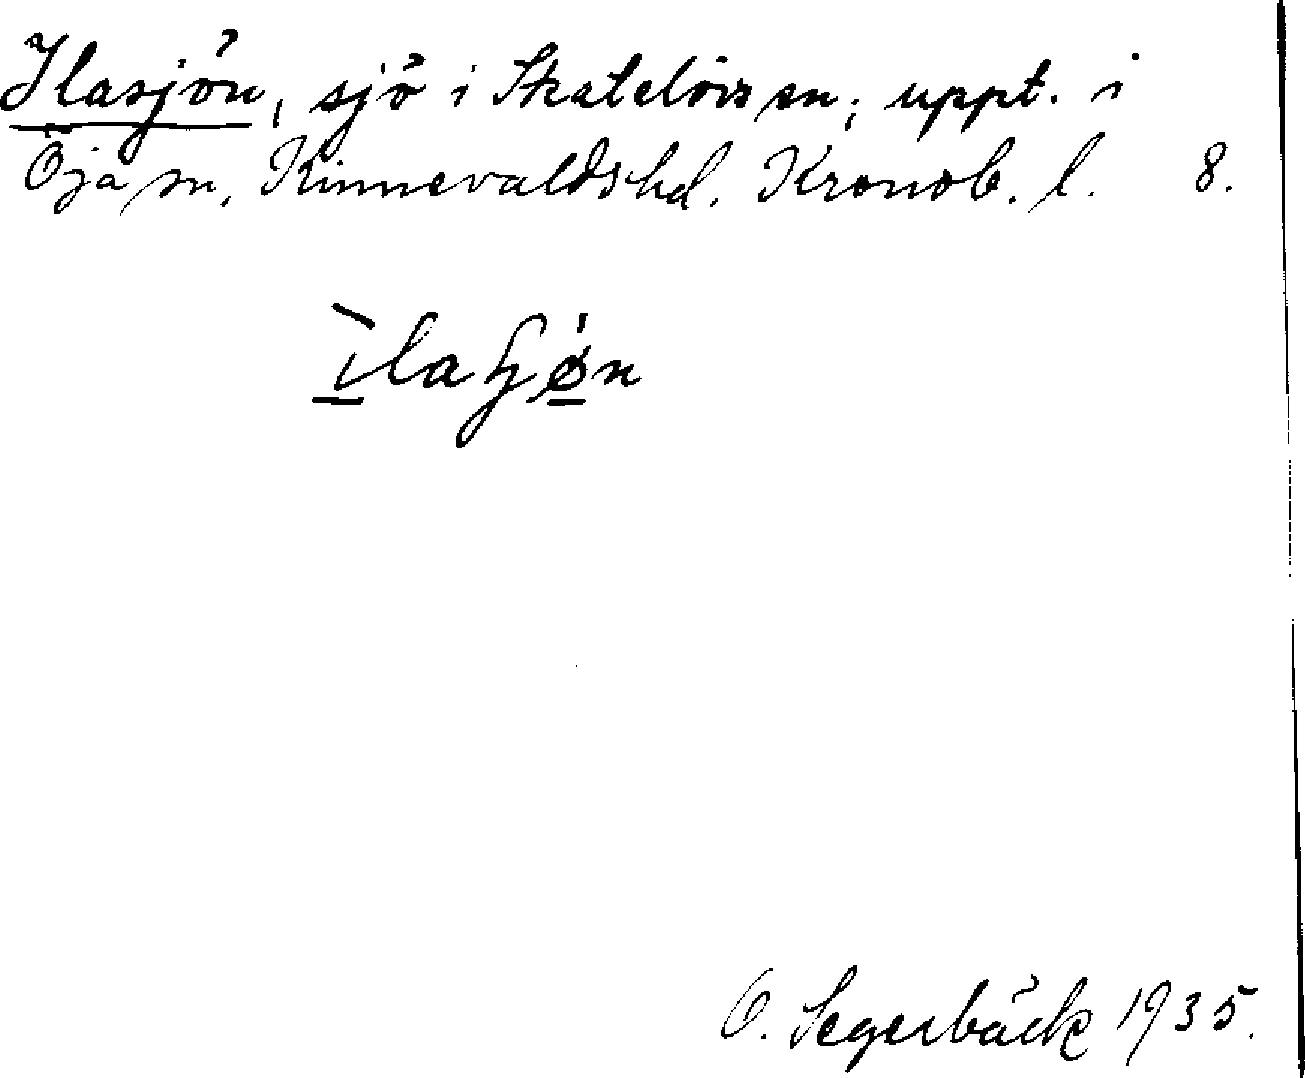 Ilasjön, sjö i Skatelövs sn; uppt. i
Öja sn, Kinnevalds hd. Kronob. l. 8.
ìlaɧøn
O. Segerbäck 1935.